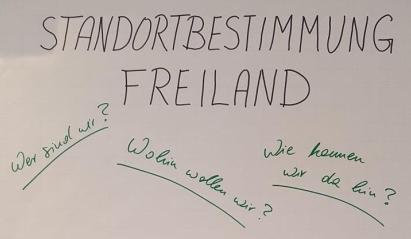 STANDORTBESTIMMUNG
FREILAND
Wer sind wir?
Wohin wollen wir?
Wie kommen
wir da hin?